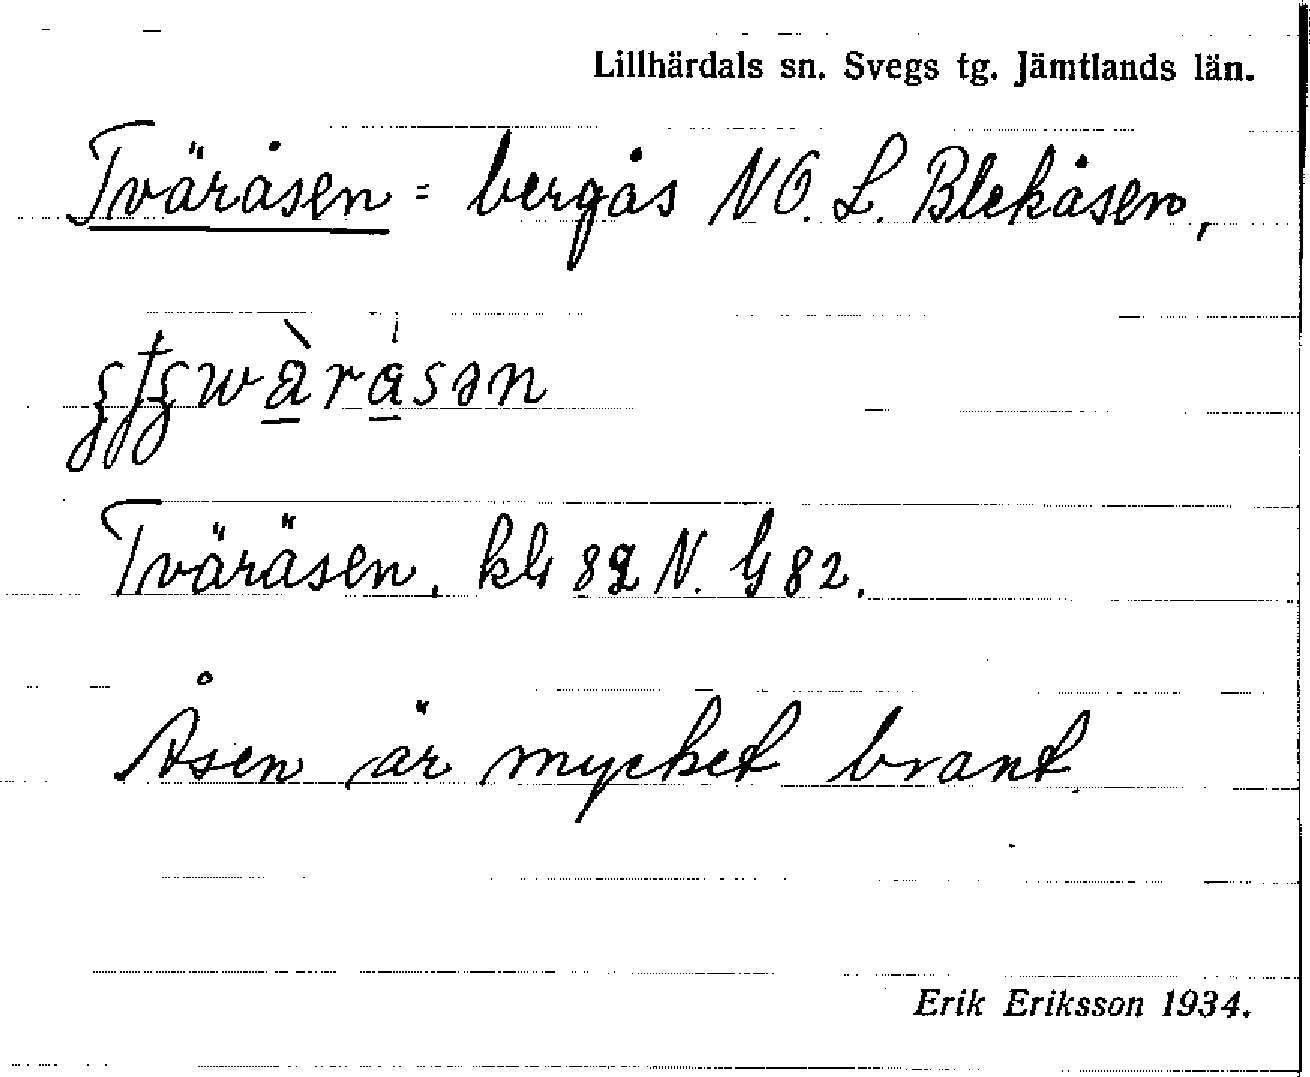 Lillhärdals sn. Svegs tg. Jämtlands län.
Tväråsen = bergås NO. L. Blekåsen,
wàråsən
Tväräsen. kbl 82 N. bl 82.
Åsen är mycket brant.
Erik Eriksson 1934.